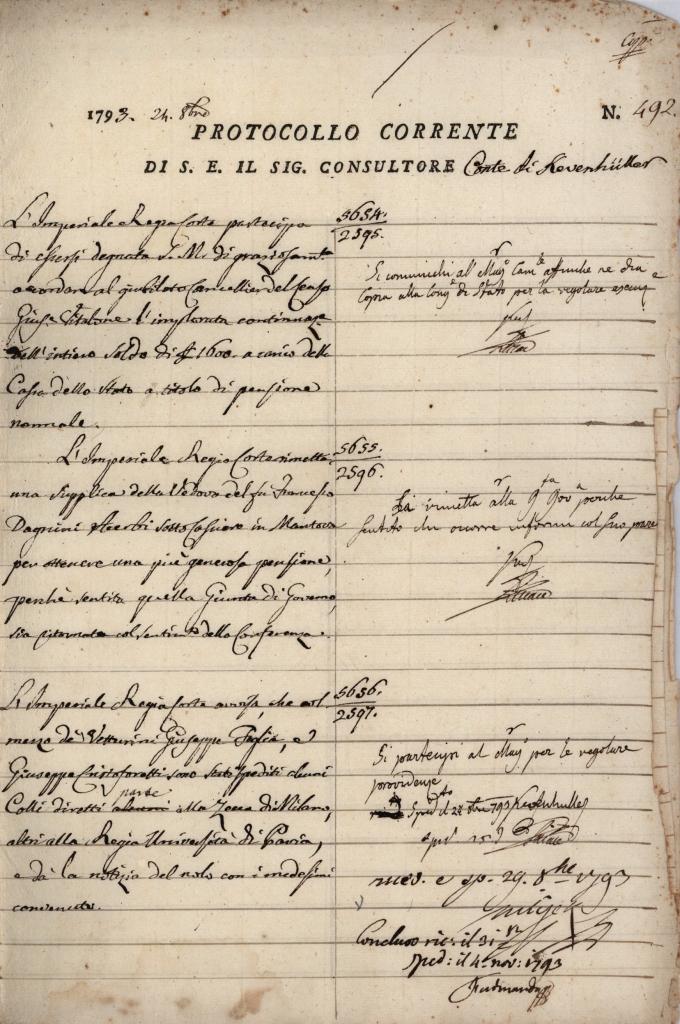 Copia
1793. 24. 8bre
N. 492.
PROTOCOLLO CORRENTE
DI S. E. IL SIG. CONSULTORE Conte di Kevenhüller
L'Imperiale Regia Corte partecipa
di essersi degnata S. M. di graziosamte
accordare al giubilato Cancellier del Censo
Giuse. Vitalone l'implorata continuaze
dell'intiero soldo di f 1600. a carico della
Cassa dello Stato a titolo di pensione
normale.
5654.
2595.
Si comunichi al Magr Came affinche ne dia
Copia alla Conga di Stato per la regolare
L'Imperiale Regia Corte rimette
una supplica della Vedova del fu Francesco
Dagnini Sterbi sotto Cassiere in Mantova
per ottenere una più generosa pensione,
perchè sentita quella Giunta di Governo,
sia ritornata col sentimto della Conferenza.
5655.
2596.
Si rimetta alla Gta Gova perche
sentito chi occorre informi col suo parere
L'Imperiale Regia Corte avvisa, che col
mezzo de' Vetturini Giuseppe Tasca, e
Giuseppe Cristoforetti sono stati spediti alcuni
Colli diretti alcuni parte alla Zecca di Milano,
altri alla Regia Università di Pavia,
e dà la notizia del nolo con i medesimi
convenuto.
5656.
2597.
Si partecipi al Magr per le regolare
providenze
Spedto il 28 8bre 793 Kevenhuller
ricev. e sp. 29. 8bre 1793
Concluso ric: il 31
Sped: il 4. nov: 1793